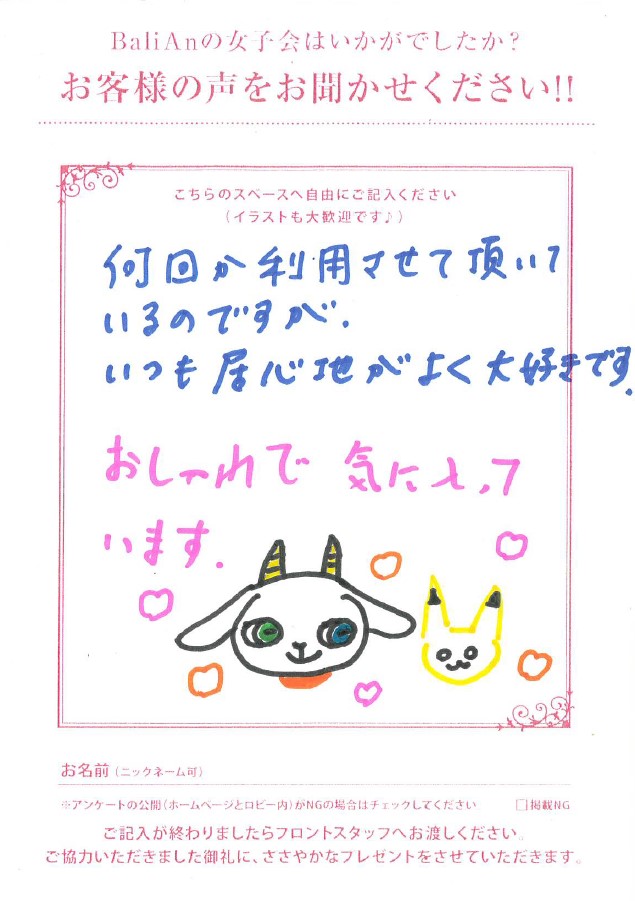 BaliAnの女子会はいかがでしたか?
お客様の声をお聞かせください!!
こちらのスペースへ自由にご記入ください
(イラストも大歓迎です♪)
何回か利用させて頂いて
いるのですが、
いつも居心地がよく大好きです。
おしゃれで 気に入って
います。
お名前(ニックネーム可)
※アンケートの公開(ホームページとロビー内)がNGの場合はチェックしてください □掲載NG
ご記入が終わりましたらフロントスタッフへお渡しください。
ご協力いただきました御礼に、ささやかなプレゼントをさせていただきます。